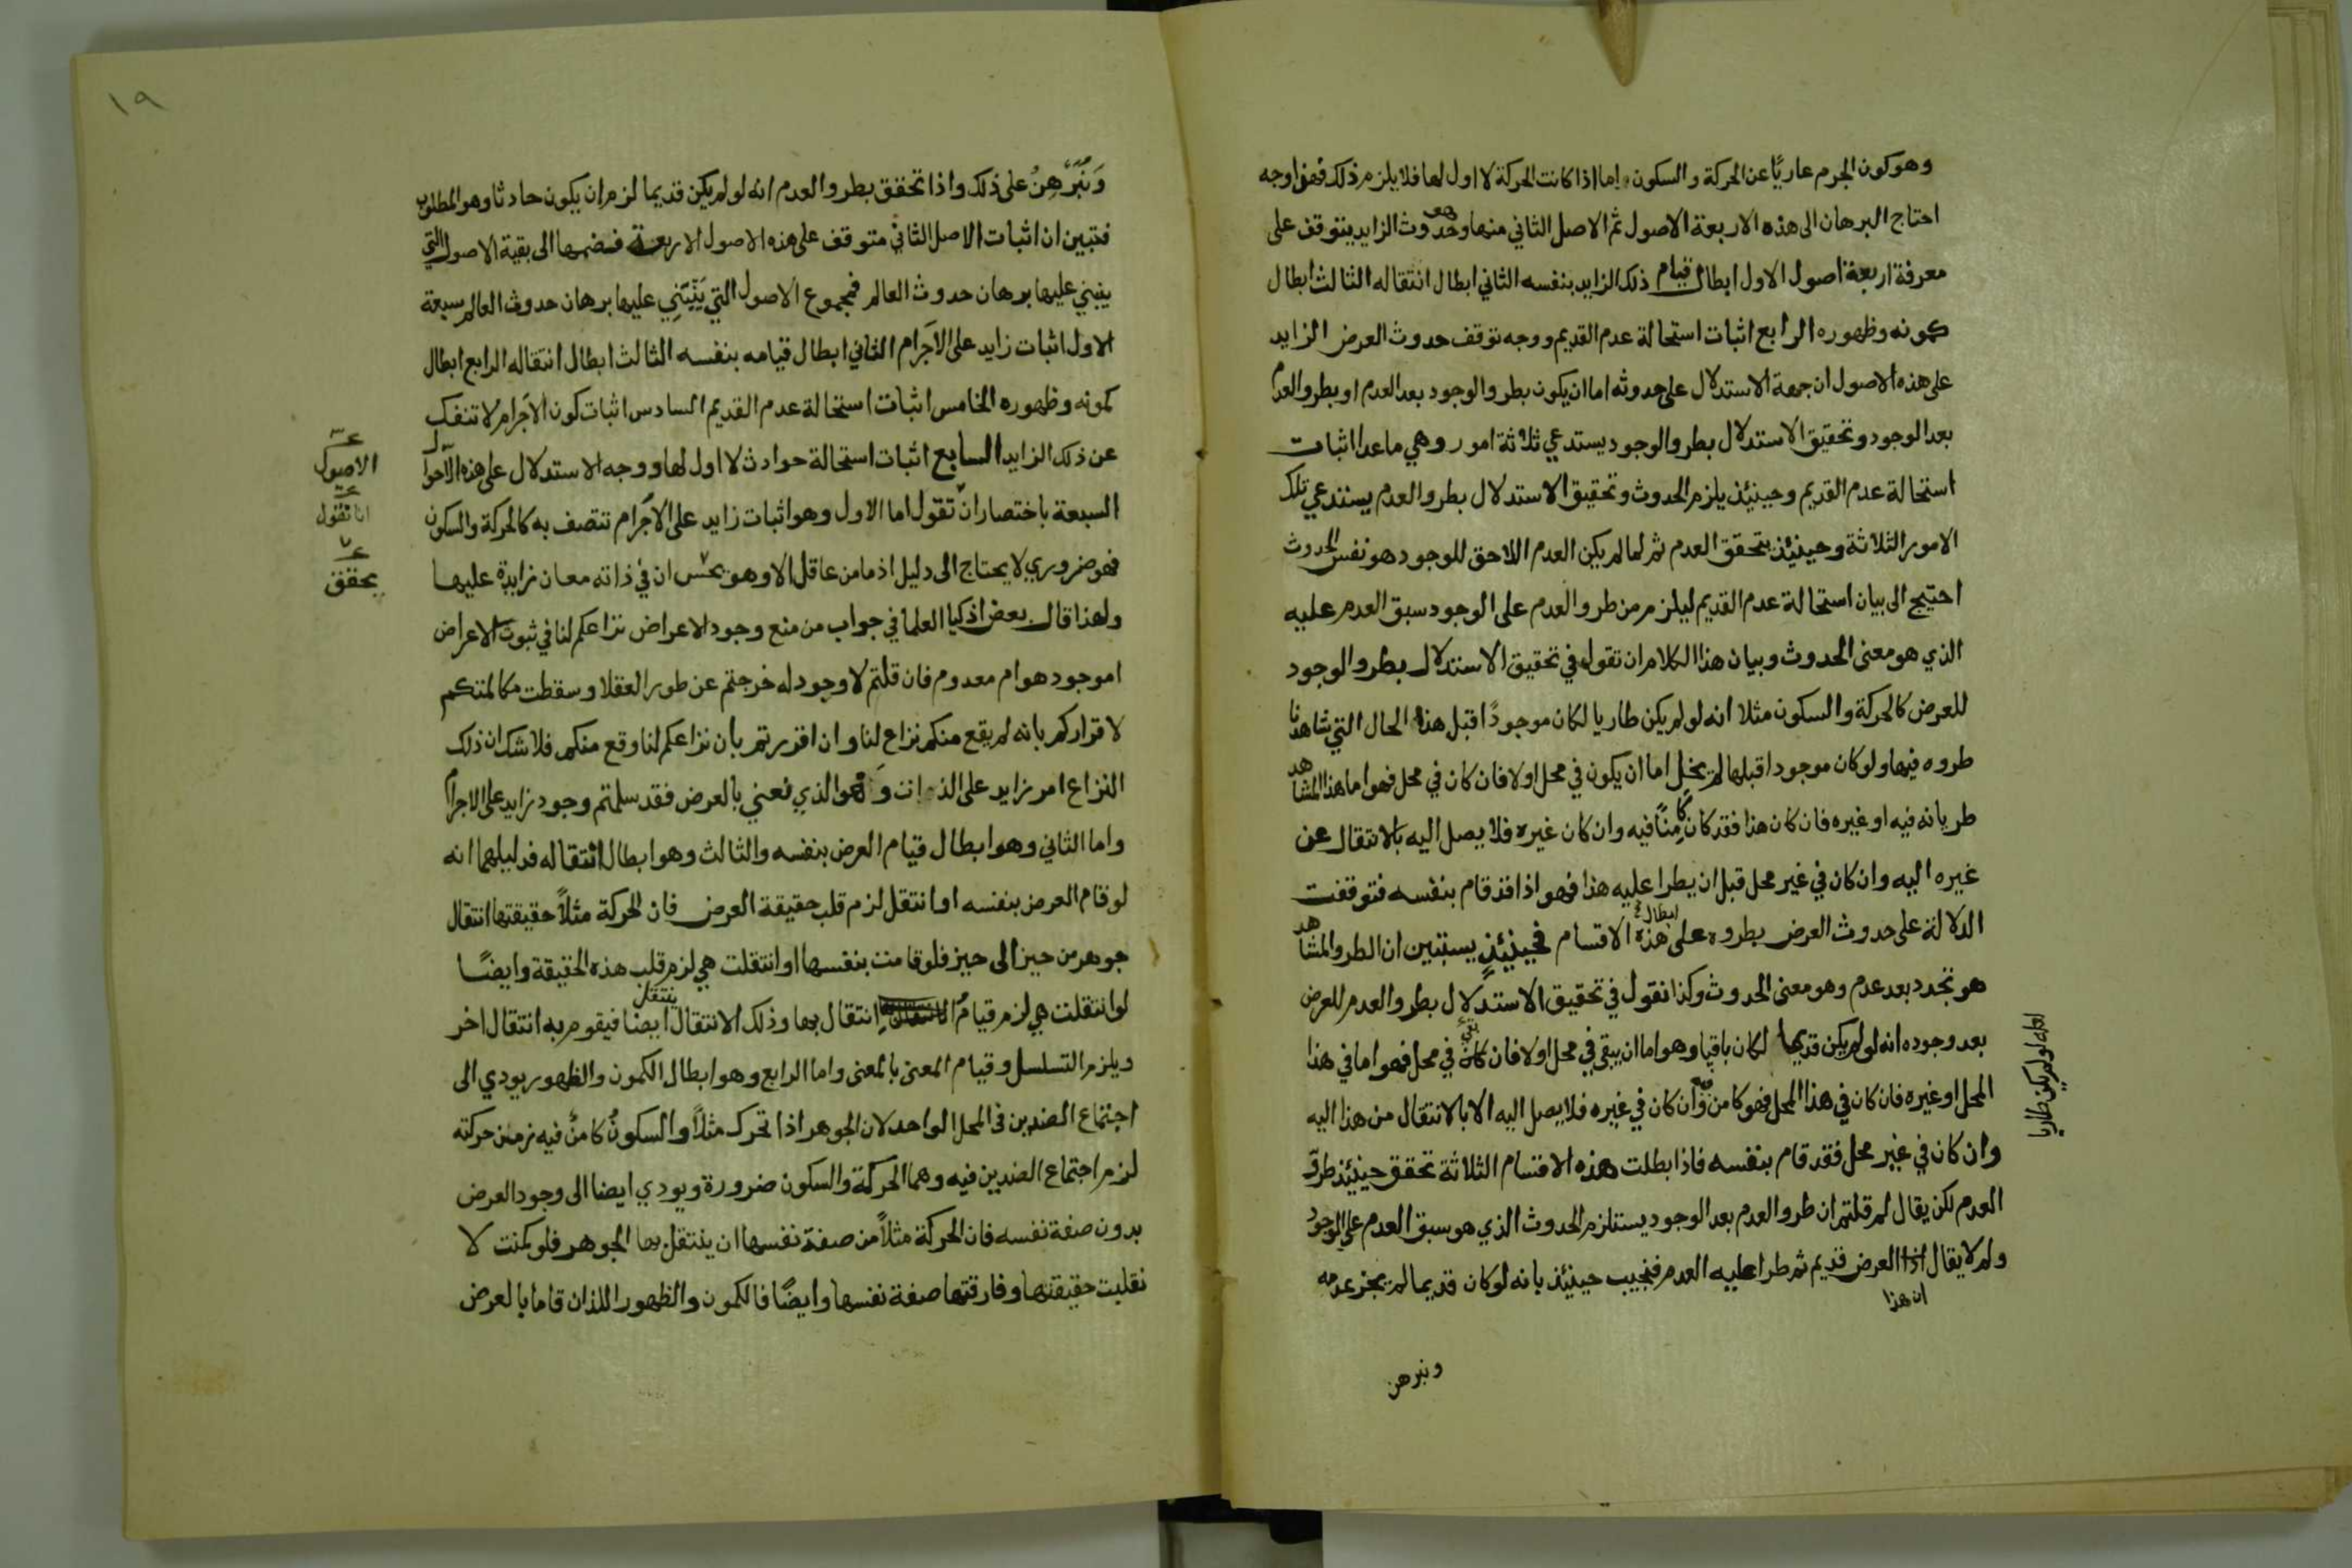 وهو كون الجرم عاريًا عن الحركة والسكون اما اذا كانت الحركة لا اول لها فلا يلزم ذلك فهذا وجه
احتاج البرهان الى هذه الاربعة الاصول ثم الاصل الثاني منها وهو حدوث الزايد يتوقف على
معرفة اربعة اصول الاول ابطال قيام ذلك الزايد بنفسه الثاني ابطال انتقاله الثالث ابطال
كمونه وظهوره الرابع اثبات استحالة عدم القديم ووجه توقف حدوث العرض الزايد
على هذه الاصول ان جهة الاستدلال على حدوثه اما ان يكون بطرو الوجود بعد العدم او بطرو العدم
بعد الوجود وتحقيق الاستدلال بطرو الوجود يستدعي ثلاثة امور وهي ما عدا اثبات
استحالة عدم القديم وحينئذ يلزم الحدوث وتحقيق الاستدلال بطرو العدم يستدعي تلك
الامور الثلاثة وحينئذ يتحقق العدم ثم لما لم يكن العدم اللاحق للوجود هو نفس الحدوث
احتيج الى بيان استحالة عدم القديم ليلزم من طرو العدم على الوجود سبق العدم عليه
الذي هو معنى الحدوث وبيان هذا الكلام ان تقول في تحقيق الاستدلال بطرو الوجود
للعرض كالحركة والسكون مثلا انه لو لم يكن طاريا لكان موجودًا قبل هذه الحال التي شاهدنا
طروه فيها ولو كان موجودا قبلها لم يخل اما ان يكون في محل او لا فان كان في محل فهو اما هذا المشاهد
طريانه فيه او غيره فان كان هذا فقد كان كامنًا فيه وان كان غيره فلا يصل اليه بالانتقال عن
غيره اليه وان كان في غير محل قبل ان يطرا عليه هذا فهو اذا قد قام بنفسه فتوقفت
الدلالة على حدوث العرض بطروه على ابطال هذه الاقسام فحينئذٍ يستبين ان الطرو المشاهد
هو تجدد بعد عدم وهو معنى الحدوث وكذا نقول في تحقيق الاستدلال بطرو العدم للعرض
بعد وجوده انه لو لم يكن قديما لكان باقيا وهو اما ان يبقى في محل او لا فان كان بقي في محل فهو اما في هذا
المحل او غيره فان كان في هذا المحل فهو كامن فيه وان كان في غيره فلا يصل اليه الا بالانتقال من هذا اليه
وان كان في غير محل فقد قام بنفسه فاذا بطلت هذه الاقسام الثلاثة تحقق حينئذ طرو
العدم لكن يقال لم قلتم ان طرو العدم بعد الوجود يستلزم الحدوث الذي هو سبق العدم على الوجود
ولم لا يقال اذا العرض قديم ثم طرا عليه العدم فنجيب حينئذ بانه لو كان قديما لم يجز عدمه
ان هذا
لعله لو لم يكن طاريا
ونبرهن
١٩
وَنُبَرْهِنُ على ذلك واذا تحقق بطرو العدم انه لو لم يكن قديما لزم ان يكون حادثا وهو المطلوب
فتبين ان اثبات الاصل الثاني متوقف على هذه الاصول الاربعة فضمها الى بقية الاصول التي
ينبني عليها برهان حدوث العالم فمجموع الاصول التي يَنْبَنِي عليها برهان حدوث العالم سبعة
الاول اثبات زايد على الاجرام الثاني ابطال قيامه بنفسه الثالث ابطال انتقاله الرابع ابطال
كمونه وظهوره الخامس اثبات استحالة عدم القديم السادس اثبات كون الاجرام لا تنفك
عن ذلك الزايد السابع اثبات استحالة حوادث لا اول لها ووجه الاستدلال على هذه الاحوال
السبعة باختصار ان تقول اما الاول وهو اثبات زايد على الاجرام تتصف به كالحركة والسكون
فهو ضروري لا يحتاج الى دليل اذ ما من عاقل الا وهو يحس ان في ذاته معان زايدة عليها
ولهذا قال بعض اذكيا العلما في جواب من منع وجود الاعراض نزاعكم لنا في ثبوت الاعراض
اموجود هو ام معدوم فان قلتم لا وجود له خرجتم عن طور العقلا وسقطت مكالمتكم
لاقراركم بانه لم يقع منكم نزاع لنا وان اقررتم بان نزاعكم لنا وقع منكم فلا شك ان ذلك
النزاع امر زايد على الذات وهو الذي نعني بالعرض فقد سلمتم وجود زايد على الاجرام
واما الثاني وهو ابطال قيام العرض بنفسه والثالث وهو ابطال انتقاله فدليلهما انه
لو قام العرض بنفسه او انتقل لزم قلب حقيقة العرض فان الحركة مثلاً حقيقتها انتقال
جوهر من حيز الى حيز فلو قامت بنفسها او انتقلت هي لزم قلب هذه الحقيقة وايضًا
لو انتقلت هي لزم قيام انتقال بها وذلك الانتقال ينتقل ايضا فيقوم به انتقال اخر
ويلزم التسلسل وقيام المعنى بالمعنى واما الرابع وهو ابطال الكمون والظهور يودي الى
اجتماع الضدين في المحل الواحد لان الجوهر اذا تحرك مثلاً والسكونُ كامنٌ فيه زمن حركته
لزم اجتماع الضدين فيه وهما الحركة والسكون ضرورة ويودي ايضا الى وجود العرض
بدون صفة نفسه فان الحركة مثلاً من صفة نفسها ان ينتقل بها الجوهر فلو كمنت لا
نقلبت حقيقتها وفارقتها صفة نفسها وايضًا فالكمون والظهور اللذان قاما بالعرض
الاصول
انا نقول
يحقق